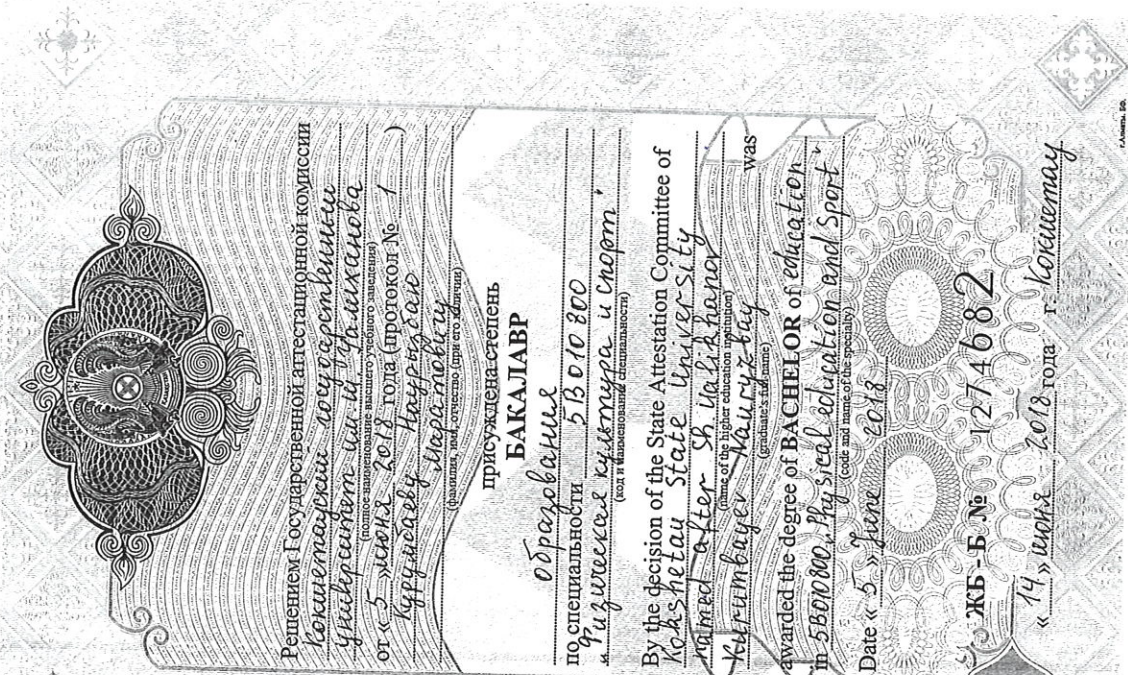 Решением Государственной аттестационной комиссии
Кокшетауский государственный
университет им. Ш. Уалиханова
(полное наименование высшего учебного заведения)
от « 5 » июня 2018 года (протокол № 1 )
Курумбаеву Наурызбаю
Маратовичу
(фамилия, имя, отчество (при его наличии)
присуждена степень
БАКАЛАВР
образования
по специальности 5В010800
„Физическая культура и спорт"
(код и наименование специальности)
By the decision of the State Attestation Committee of
Kokshetau State University
named after Sh. Ualikhanov
(name of the higher education institution)
Kurumbayev Nauryzbay was
(graduate's full name)
awarded the degree of BACHELOR of education
in 5B010800 „Physical education and Sport"
(code and name of the specialty)
Date « 5 » June 2018
ЖБ - Б № 1274682
« 14 » июня 2018 года г. Кокшетау
г.Алматы. БФ.